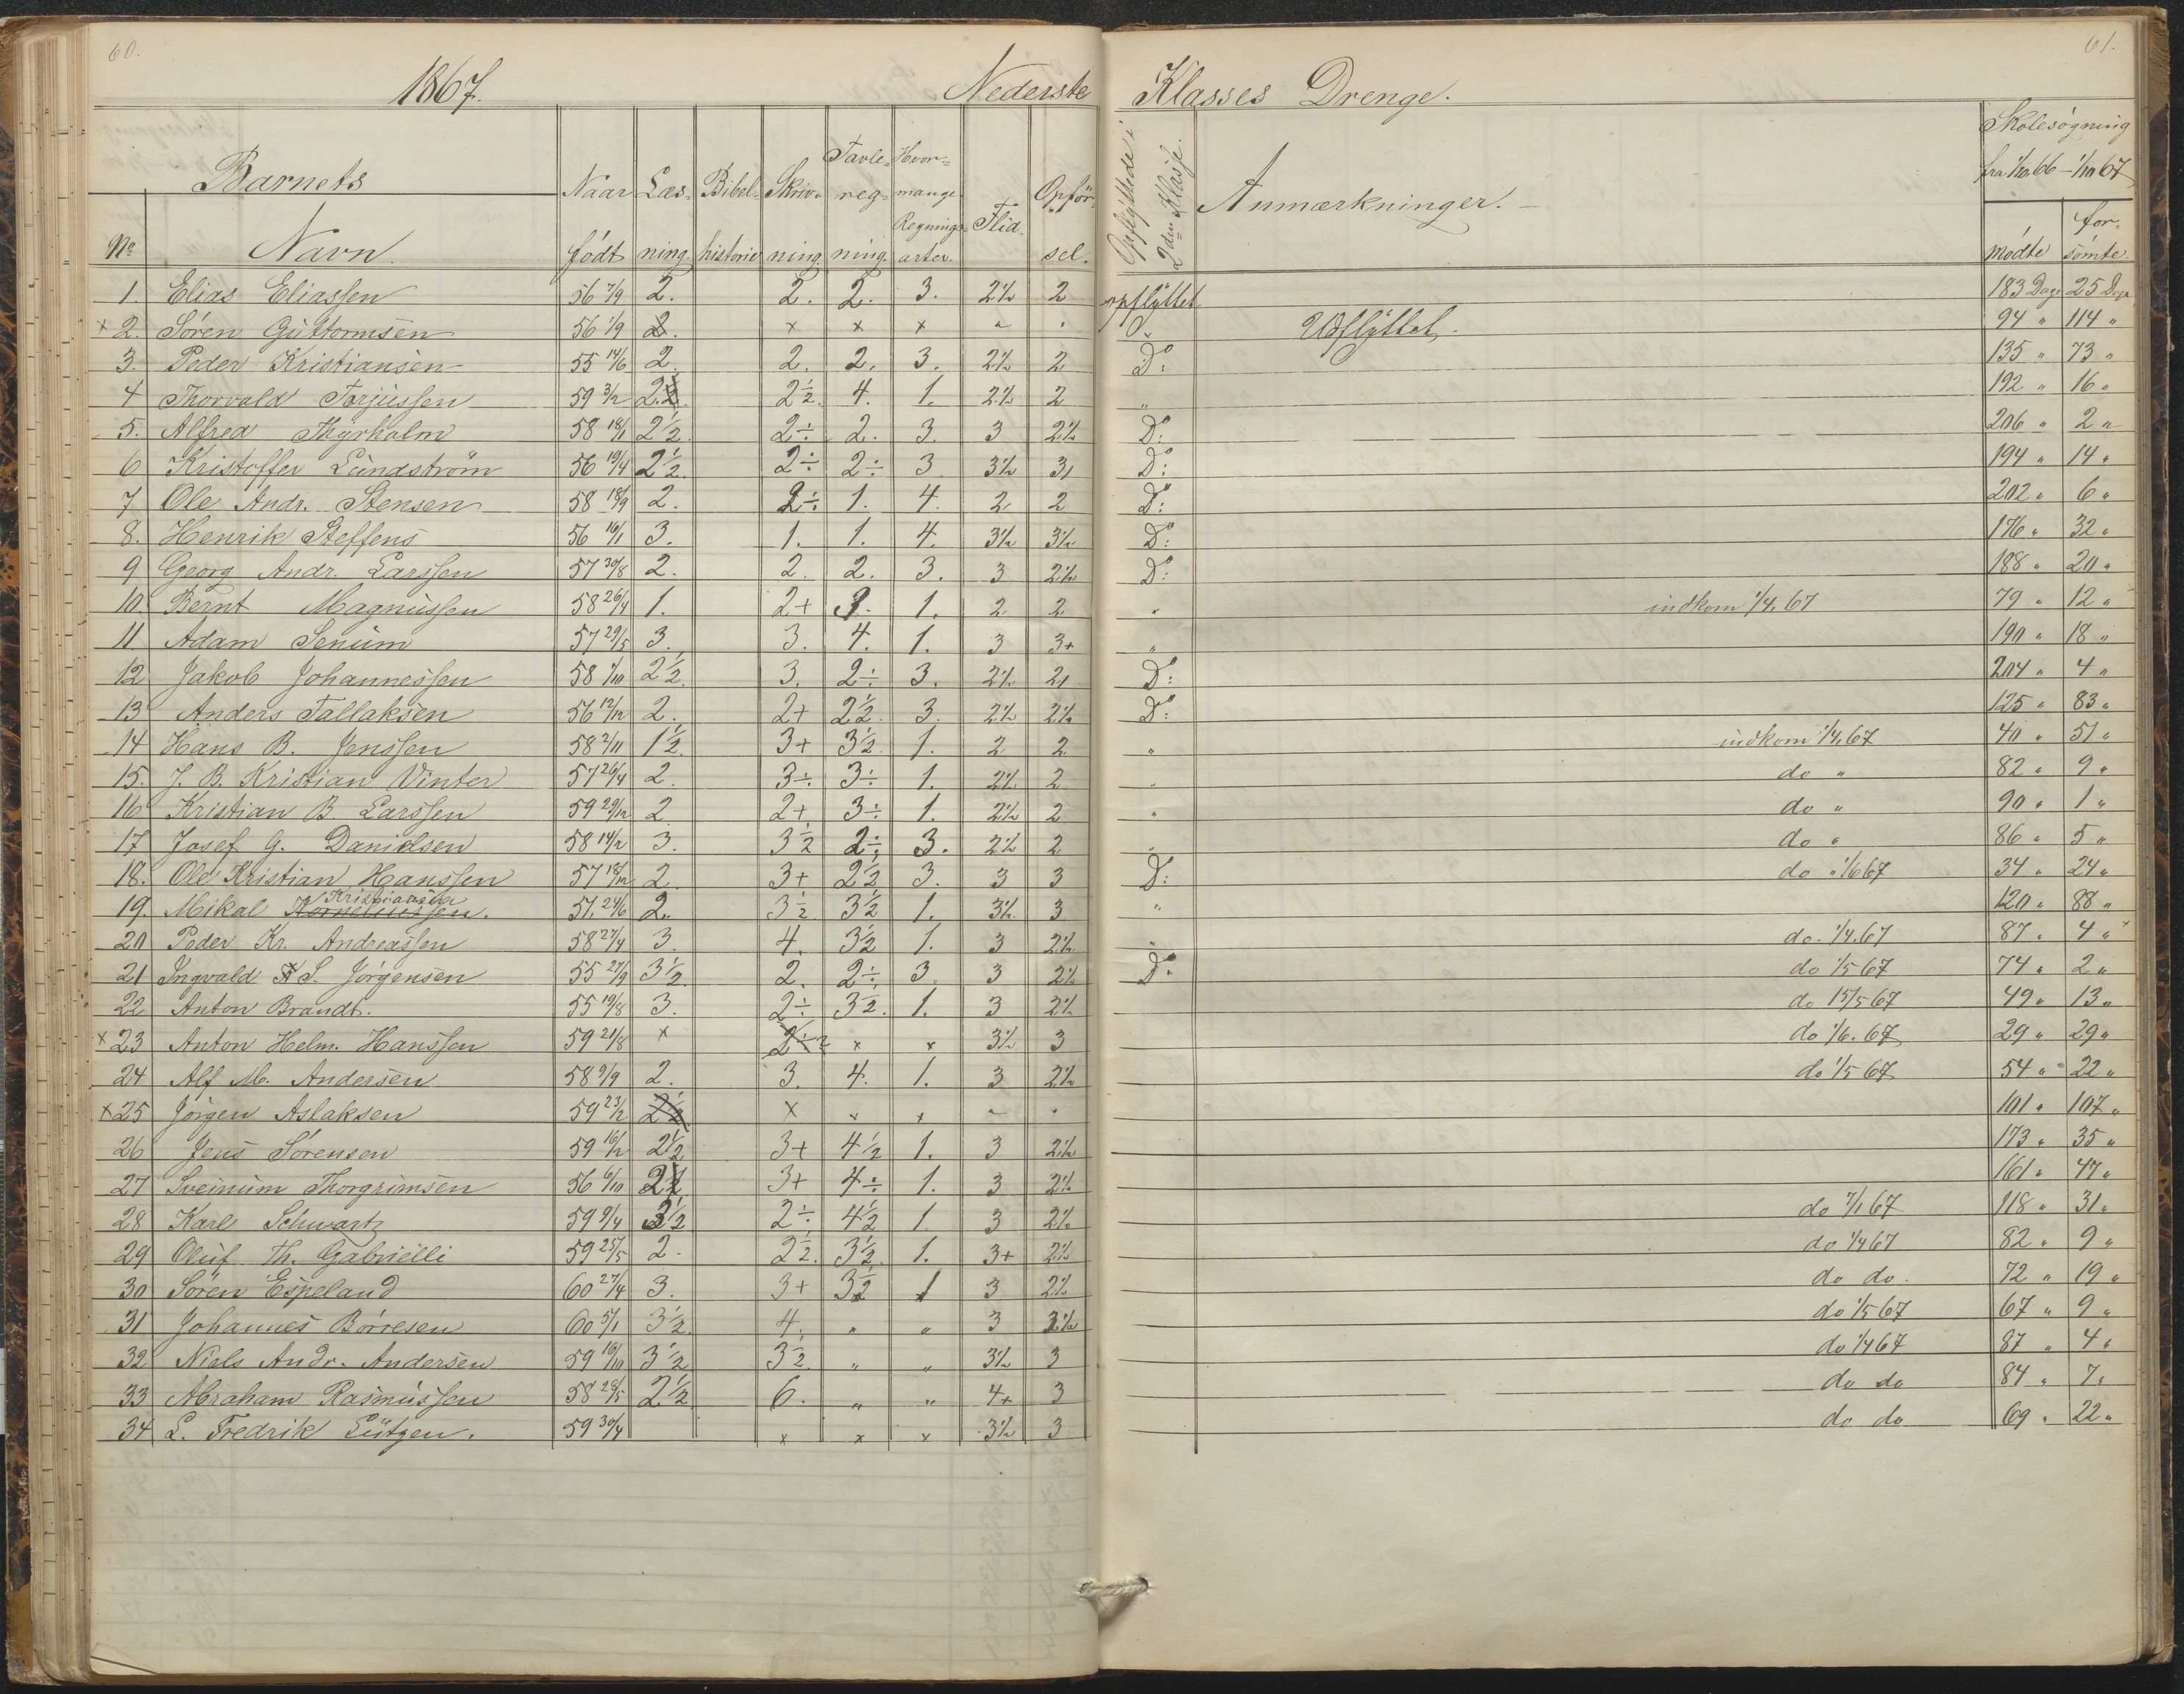 60.
61.
1867.
Nederste Klasses Drenge.
Barnets
No Navn.
Naar født
Læsning.
Bibelhistorie
Skrivning.
Tavleregning.
Hvormange Regningsarter.
Flid.
Opførsel.
Opflyttede i 2den Klasse.
Anmærkninger.
Skolesøgning
fra 1/10 66 - 1/10 67
mødte
forsømte
1. Elias Eliassen 56 7/9 2. 2. 2. 3. 2½ 2 opflyttet 183 Dage 25 Dage
x 2. Sören Guttormsen 56 1/9 2. x x x " " " Udflyttet. 94 " 114 "
3. Peder Kristiansen 55 14/6 2 2. 2. 3. 2½ 2 Do: 135 " 73 "
4 Thorvald Tarjussen 59 3/12 2. 2½. 4. 1. 2½ 2 " 192 " 16 "
5. Alfred Thyrholm 58 18/1 2½ 2÷ 2. 3. 3 2½ Do: 206 " 2 "
6 Kristoffer Lundström 56 19/4 2½ 2÷ 2÷ 3 3½ 3 Do: 194 " 14 "
7 Ole Andr. Stensen 58 18/9 2. 2÷ 1. 4. 2 2 Do: 202 " 6 "
8. Henrik Steffens 56 16/1 3. 1. 1. 4. 3½ 3½ Do: 176 " 32 "
9 Georg Andr. Larssen 57 30/8 2. 2. 2. 3. 3 2½ Do: 188 " 20 "
10. Bernt Magnussen 58 26/4 1. 2+ 3. 1. 2 2 " indkom 1/4. 67 79 " 12 "
11. Adam Senum 57 29/5 3. 3. 4. 1. 3 3+ " 190 " 18 "
12 Jakob Johannessen 58 1/10 2½ 3. 2÷ 3. 2½ 2 Do: 204 " 4 "
13 Anders Tallaksen 56 12/12 2. 2+ 2½ 3. 2½ 2½ Do: 125 " 83 "
14 Hans B. Jenssen 58 2/11 1½ 3+ 3½ 1. 2 2 " indkom 1/4. 67 40 " 51 "
15. J. B. Kristian Vinter 57 26/4 2. 3÷ 3÷ 1. 2½ 2 " do " 82 " 9 "
16 Kristian B Larssen 59 29/12 2 2+ 3÷ 1. 2½ 2 " do " 90 " 1 "
17 Josef G. Danielsen 58 14/2 3. 3½ 2÷ 3. 2½ 2 " do " 86 " 5 "
18. Ole Kristian Hanssen 57 18/12 2 3+ 2½ 3. 3 3 Do: do " 1/6 67 34 " 24 "
19. Mikal Korneliussen. 57. 24/6 2. 3½ 3½ 1. 3½ 3 " 120 " 88 "
20 Peder Kr. Andreassen 58 27/4 3. 4. 3½ 1. 3 2½ " do. 1/4. 67 87 " 4 "
21 Ingvald S. Jörgensen 55 27/9 3½ 2. 2÷ 3 3 2½ Do. do 1/5 67 74 " 2 "
22 Anton Brandt. 55 19/8 3. 2÷ 3½. 1. 3 2½ do 15/5 67 49 " 13 "
x 23 Anton Helm. Hanssen 59 21/8 x 2÷ x x 3½ 3 do 1/6. 67 29 " 29 "
24 Alf M. Andersen 58 9/9 2. 3. 4. 1. 3 2½ do 1/5 67 54 " 22 "
x 25 Jörgen Aslaksen 59 23/2 2½ x x x " " 101 " 107 "
26 Jens Sörensen 59 16/2 2½ 3+ 4½ 1. 3 2½ 173 " 35 "
27 Sveinum Thorgrimsen 56 6/10 2 3+ 4÷ 1. 3 2½ 161 " 47 "
28 Karl Schwartz 59 9/4 3½ 2÷ 4½ 1 3 2½ do 7/1 67 118 " 31 "
29 Oluf Th. Gabrielli 59 25/5 2. 2½. 3½. 1. 3+ 2½ do 1/4 67 82 " 9 "
30 Sören Espeland 60 27/4 3. 3+ 3½ 1 3 2½ do do. 72 " 19 "
31 Johannes Börresen 60 5/1 3½ 4. " " 3 2½ do 1/5 67 67 " 9 "
32 Niels Andr. Andersen 59 16/10 3½ 3½. " " 3½ 3 do 1/4 67 87 " 4 "
33 Abraham Rasmussen 58 28/5 2½ 6. " " 4+ 3 do do 84 " 7 "
34 L. Fredrik Lützen. 59 30/4 x x x 3½ 3 do do 69 " 22 "